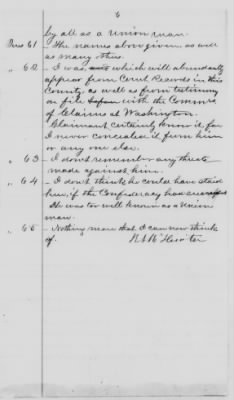 6
by all as a Union man.
Ques 61 – The names above given, as well
as many others.
" 62 – I was, which will abundantly
appear from Court Records in this
County, as well as from testimony
on file with the Commrs
of Claims at Washington.
Claimant certainly knew it, for
I never concealed it from him
or any one else.
" 63 – I don't remember any threats
made against him.
" 64 – I don't think he could have staid
here, if the Confederacy had
He was too well known as a Union
man.
" 65 – Nothing more that I can now think
of. Hunter